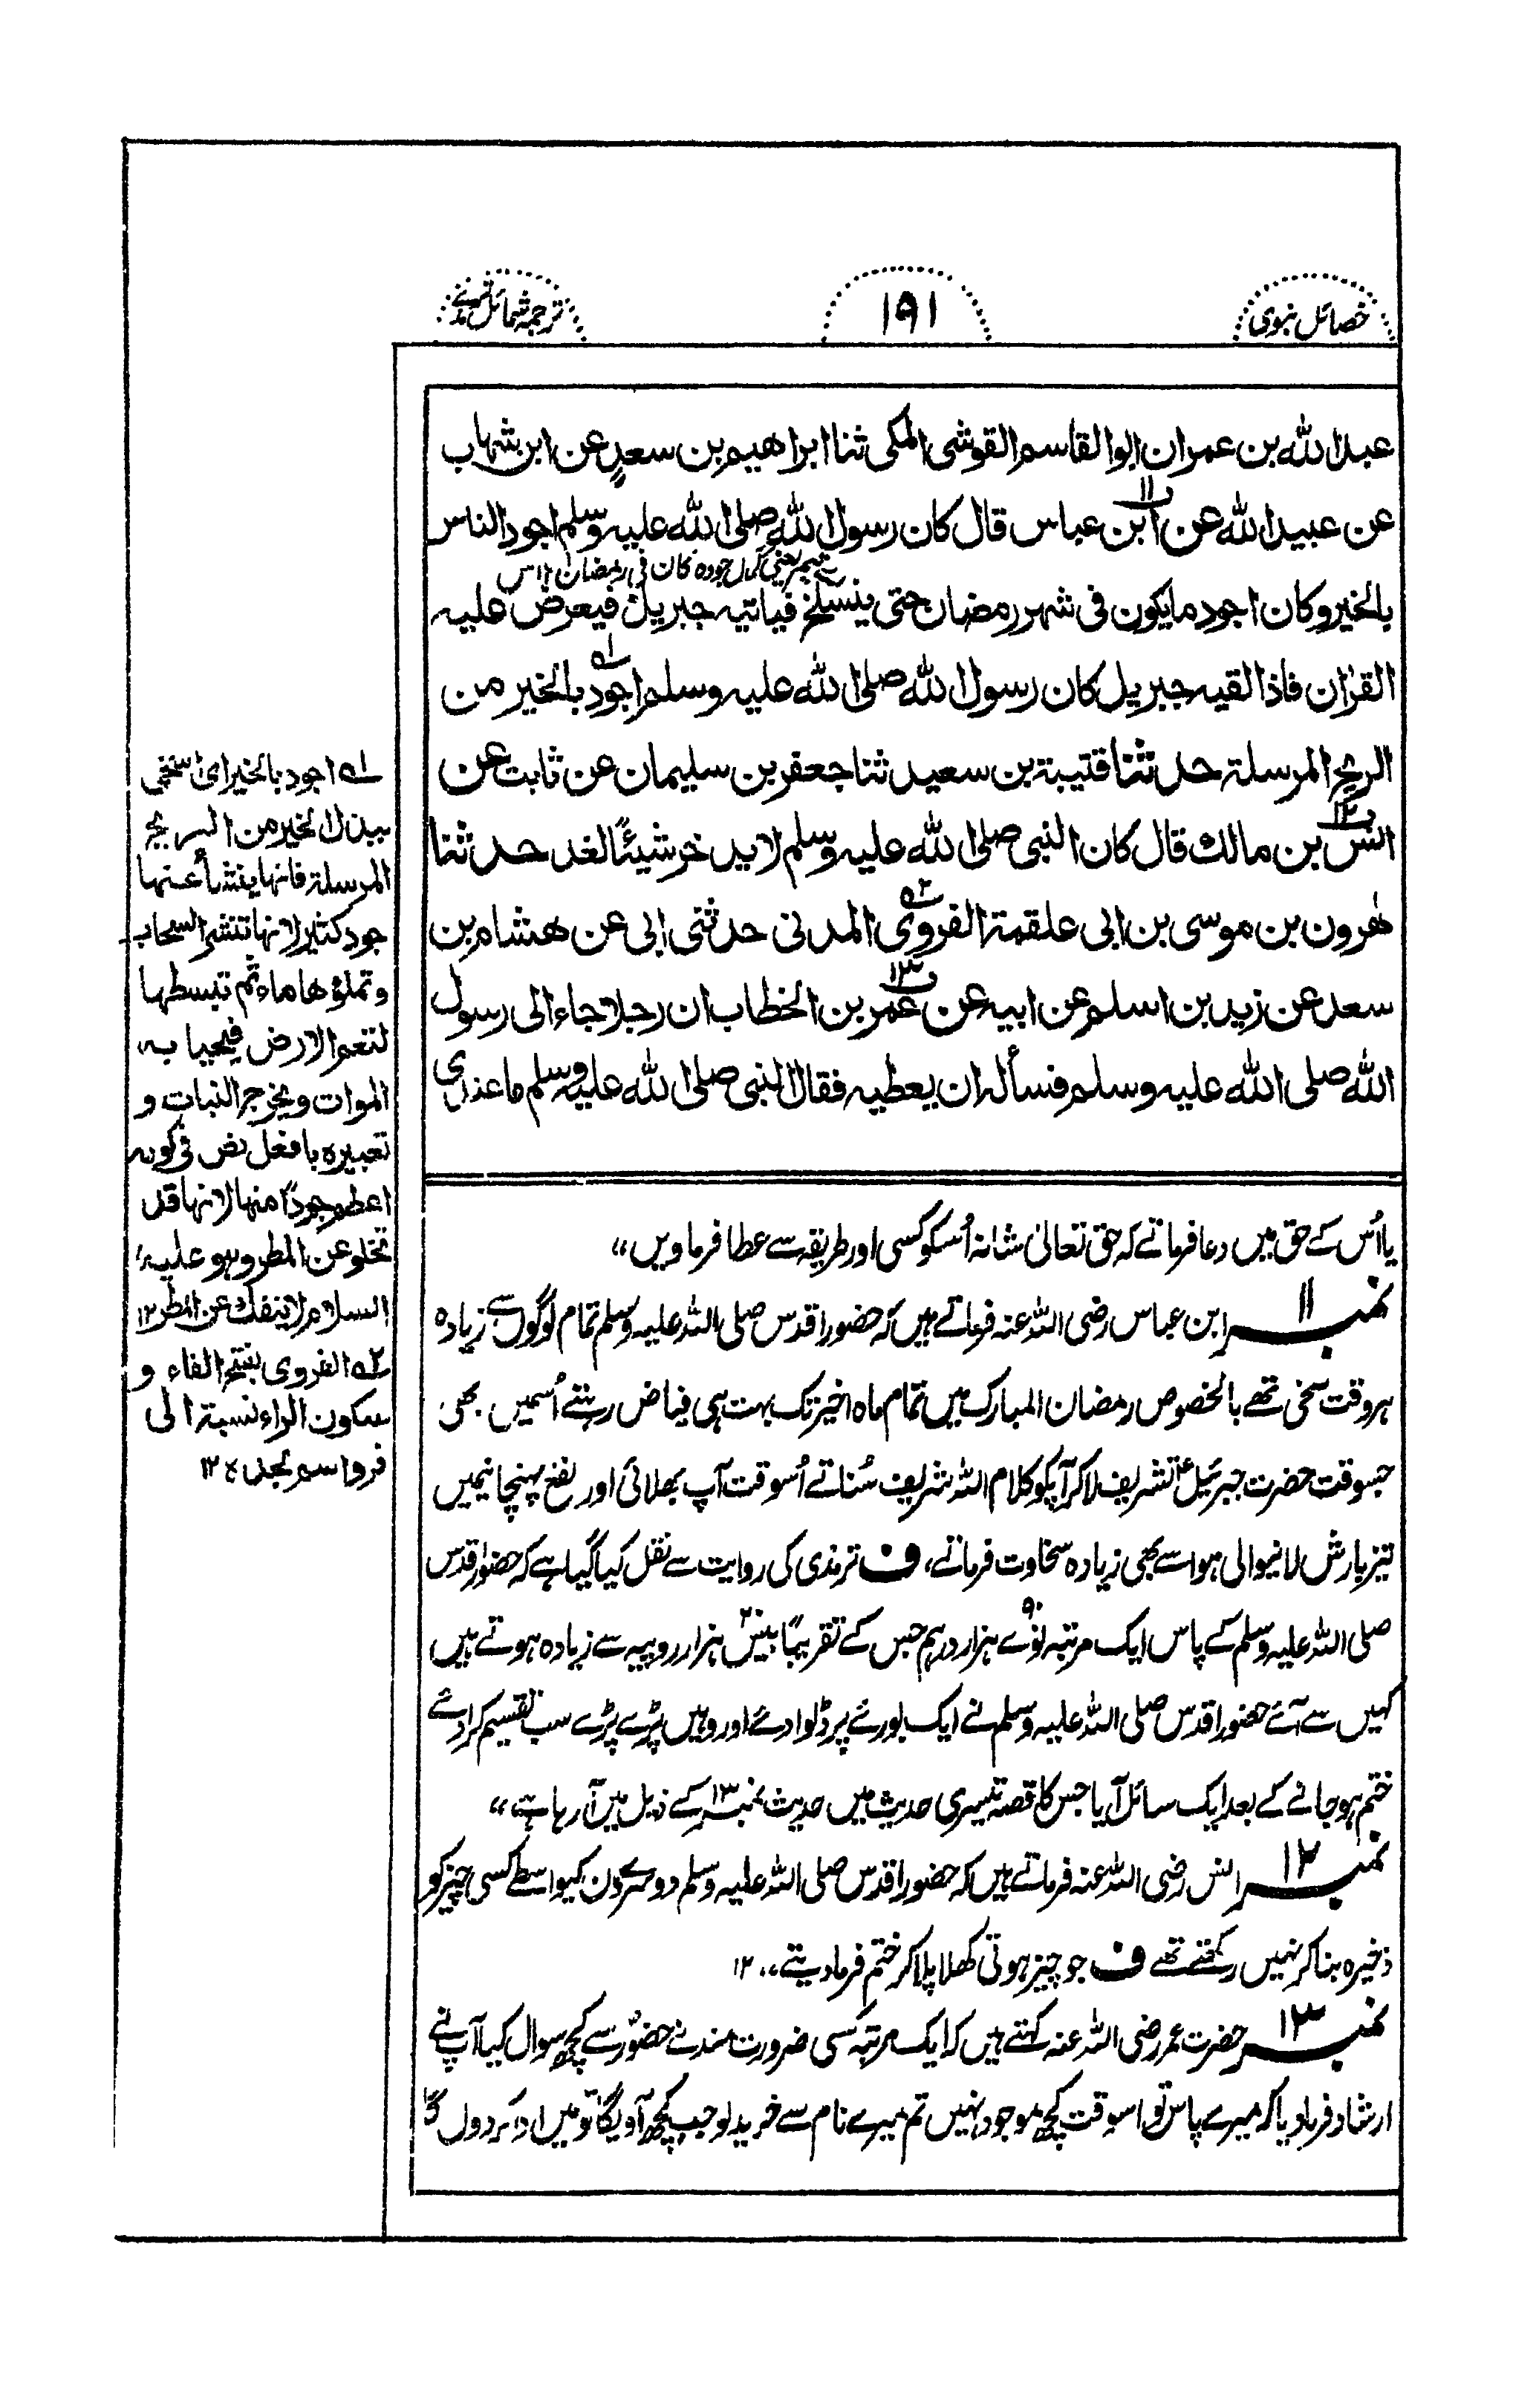 خصائل نبوی
۱۹۱
ترجمہ شمائل ترمذی
عبد الله بن عمران ابوالقاسم القرشی المکی ثنا ابراهیم بن سعدٍ عن ابن شهاب
عن عبید الله عن ابن عباس قال کان رسول الله صلی الله علیه وسلم اجود الناس
بالخیر وکان اجود مایکون فی شهر رمضان حتی ینسلخ فیاتیه جبریل فیعرض علیه
القرٰان فاذا لقیه جبریل کان رسول الله صلی الله علیه وسلم اجود بالخیر من
الریح المرسلة حدثنا قتیبة بن سعید ثنا جعفر بن سلیمان عن ثابت عن
انس بن مالك قال کان النبی صلی الله علیه وسلم لا یدخر شیئًا لغد حدثنا
هٰرون بن موسی بن ابی علقمة الفروی المدنی حدثنی ابی عن هشام بن
سعد عن زید بن اسلم عن ابیه عن عمر بن الخطاب ان رجلا جاء الی رسول
الله صلی الله علیه وسلم فسأله ان یعطیه فقال النبی صلی الله علیه وسلم ما عندی
یا اُس کے حق میں دعا فرماتے کہ حق تعالیٰ شانہ اُسکو کسی اور طریقہ سے عطا فرماویں،،
نمبر ۱۱ ابن عباس رضی اللہ عنہ فرماتے ہیں کہ حضور اقدس صلی اللہ علیہ وسلم تمام لوگوں سے زیادہ
ہر وقت سخی تھے بالخصوص رمضان المبارک میں تمام ماہ اخیر تک بہت ہی فیاض رہتے اُسمیں بھی
جسوقت حضرت جبرئیلؑ تشریف لاکر آپکو کلام اللہ شریف سُناتے اُسوقت آپ بھلائی اور نفع پہنچانیمیں
تیز بارش لانیوالی ہوا سے بھی زیادہ سخاوت فرماتے، ف ترمذی کی روایت سے نقل کیا گیا ہے کہ حضور اقدس
صلی اللہ علیہ وسلم کے پاس ایک مرتبہ نوّے ہزار درہم جس کے تقریبًا بیس ہزار روپیہ سے زیادہ ہوتے ہیں
کہیں سے آئے حضور اقدس صلی اللہ علیہ وسلم نے ایک بورئے پر ڈلوا دئے اور وہیں پڑے پڑے سب تقسیم کرا دئے
ختم ہو جانے کے بعد ایک سائل آیا جس کا قصہ تیسری حدیث میں حدیث نمبر ۱۳ کے ذیل میں آ رہا ہے،،
نمبر ۱۲ انس رضی اللہ عنہ فرماتے ہیں کہ حضور اقدس صلی اللہ علیہ وسلم دوسرے دن کیواسطے کسی چیز کو
ذخیرہ بنا کر نہیں رکھتے تھے ف جو چیز ہوتی کھلا پلا کر ختم فرما دیتے،، ۱۲
نمبر ۱۳ حضرت عمر رضی اللہ عنہ کہتے ہیں کہ ایک مرتبہ کسی ضرورتمند نے حضورؐ سے کچھ سوال کیا آپ نے
ارشاد فرما دیا کہ میرے پاس تو اسوقت کچھ موجود نہیں تم میرے نام سے خرید لو جب کچھ آویگا تو میں ادا کر دوں گا
۱ه اجود بالخیر ای اسخی
ببذل الخیر من الریح
المرسلة فانها ینشأ عنها
جود کثیر لانها تنشر السحاب
وتملؤها ماء ثم تبسطها
لتعم الارض فیحیا به
الموات ویخرج النبات و
تعبیره بافعل نص فی کونه
اعظم جودًا منها لانها قد
تخلو عن المطر وهو علیه
السلام لا ینفك عن المطر ۱۲
۲ه الفروی بفتح الفاء و
سکون الراء نسبة الی
فروا سم لجده ۱۲